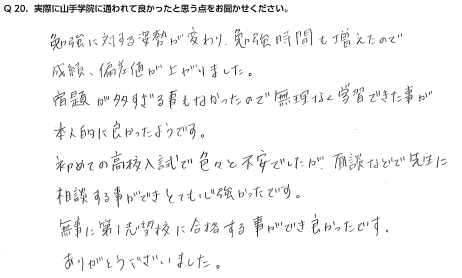 Q 20. 実際に山手学院に通われて良かったと思う点をお聞かせください。
勉強に対する姿勢が変わり、勉強時間も増えたので
成績、偏差値が上がりました。
宿題が多すぎる事もなかったので無理なく学習できた事が
本人的に良かったようです。
初めての高校入試で色々と不安でしたが、面談などで先生に
相談する事ができとても心強かったです。
無事に第1志望校に合格する事ができ良かったです。
ありがとうございました。